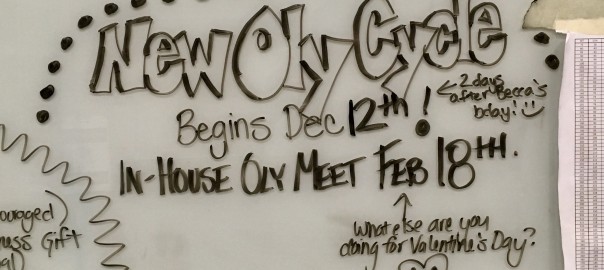 New Oly Cycle
Begins Dec 12th!
← 2 days
after Becca's
bday!
IN-HOUSE OLY MEET FEB 18TH.
What else are you
doing for Valentine's Day?
Gift